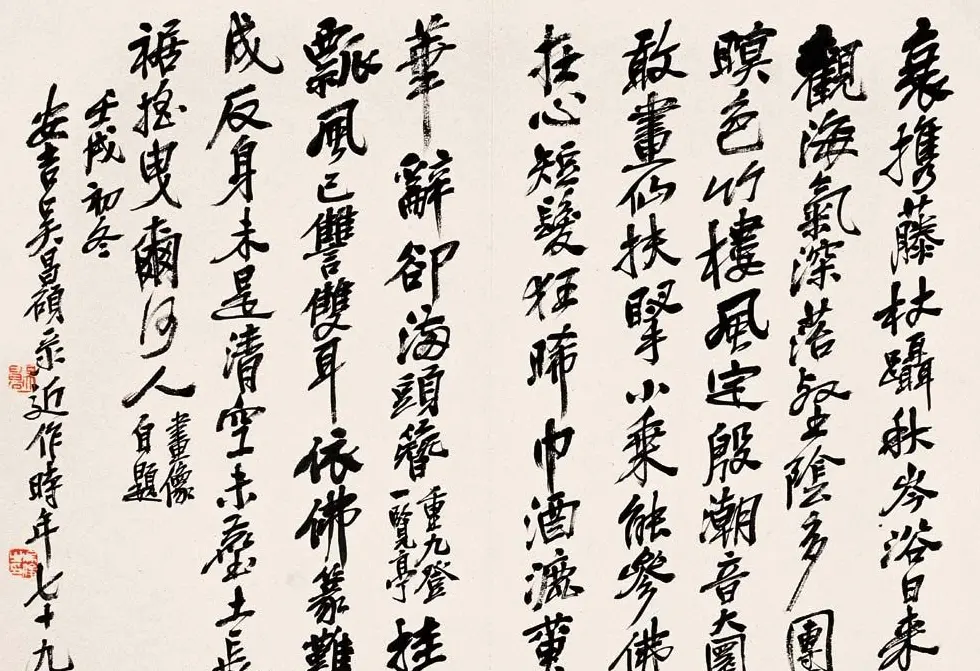 衰携藤杖躡秋岑浴日來
觀海氣深落壑陰多團
暝色竹樓風定殷潮音大圜
敢畫仙扶掔小乘能參佛
在心短髮狂晞巾酒漉黄
華辭卻海頭簪重九登一覽亭挂
瓢風已讐雙耳依佛篆難
成反身未是清空未壑土長
裾搖曳爾何人畫像自題
壬戌初冬
安吉吳昌碩录近作時年七十九